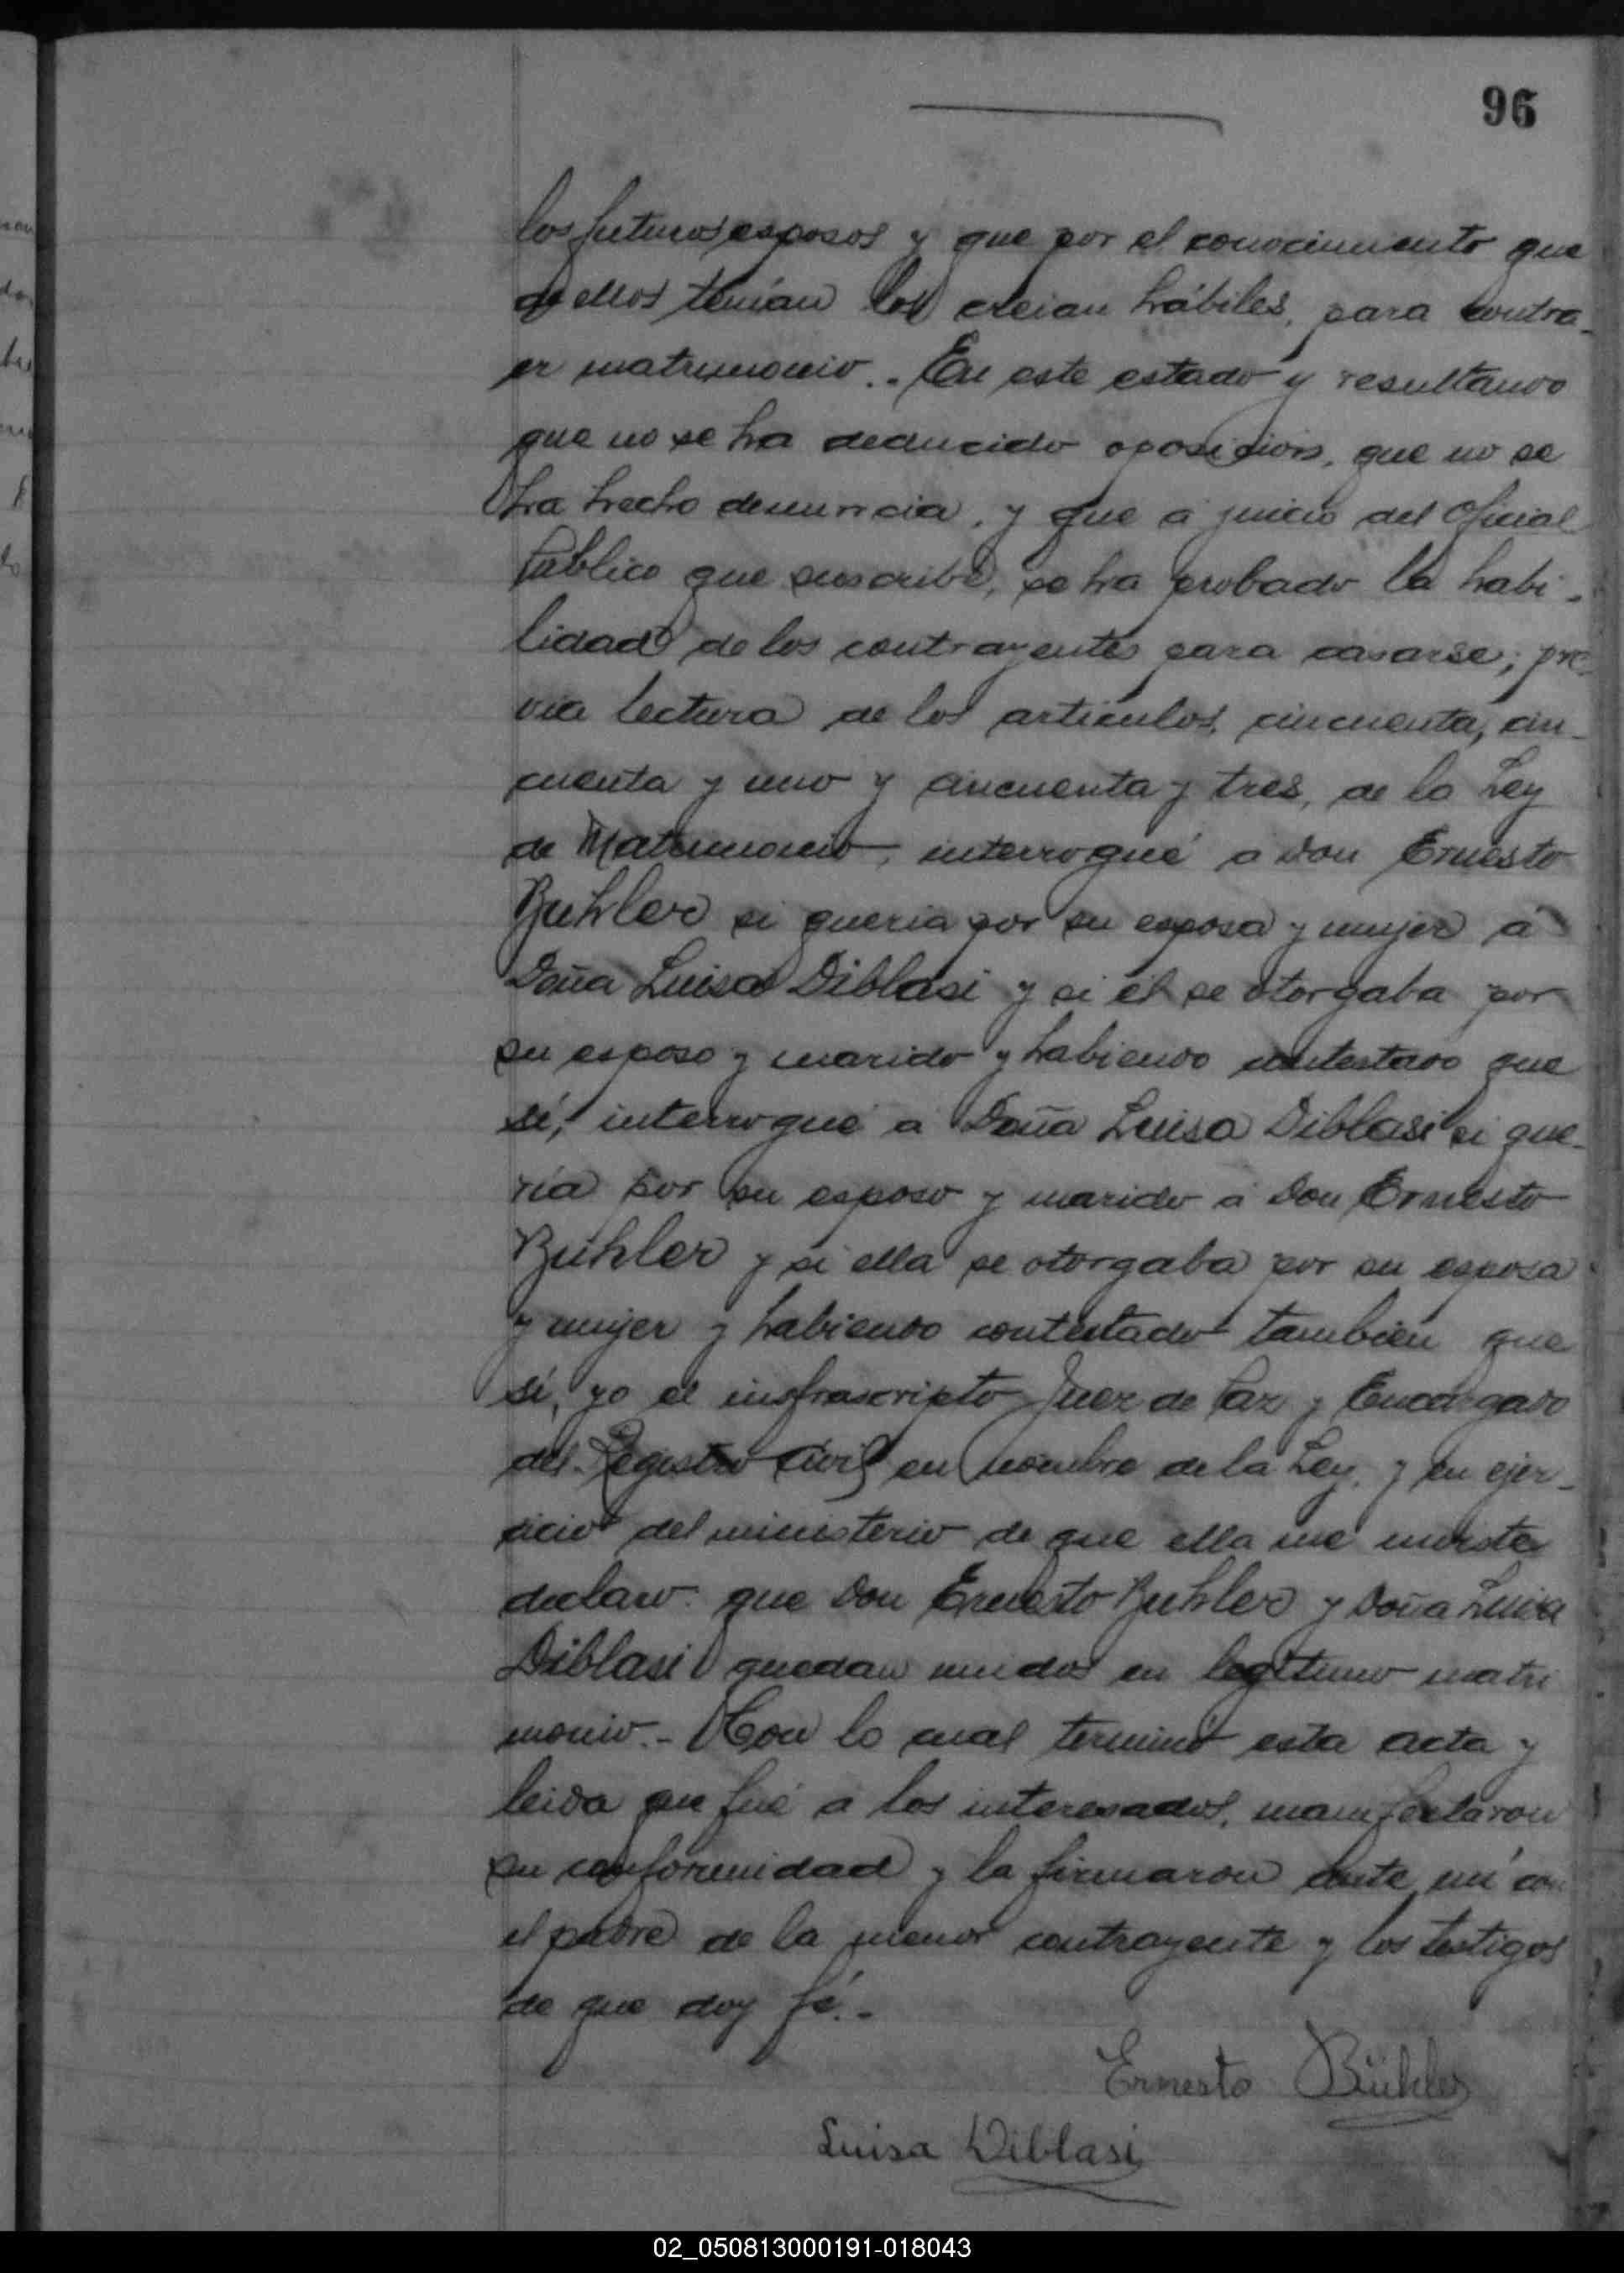 96
los futuros esposos y que por el conocimiento que
de ellos tenían los creian hábiles, para contra-
er matrimonio.. En este estado y resultando
que no se ha deducido oposicion, que no se
ha hecho denuncia, y que á juicio del Oficial
Público que suscribe, se ha probado la habi-
lidad de los contrayentes para casarse; pre-
via lectura de los artículos, cincuenta, cin-
cuenta y uno y cincuenta y tres, de la Ley
de Matrimonio, interrogué a don Ernesto
Buhler si queria por su esposa y mujer á
Doña Luisa Diblasi y si él se otorgaba por
su esposo y marido y habiendo contestado que
sí, interrogué a Doña Luisa Diblasi si que-
ría por su esposo y marido á Don Ernesto
Buhler y si ella se otorgaba por su esposa
y mujer y habiendo contestado tambien que
sí, yo el insfrascripto Juez de Paz y Encargado
del Registro Civil en nombre de la Ley, y en ejer-
cicio del ministerio de que ella me inviste
declaro: que Don Ernesto Buhler y Doña Luisa
Diblasi quedan unidos en legítimo matri
monio.- Con lo cual terminó esta acta y
leida que fué a los interesados, manifestaron
su conformidad y la firmaron ante mí con
el padre de la menor contrayente y los testigos
de que doy fé.-
Ernesto Bühler
Luisa Diblasi
02_050813000191-018043